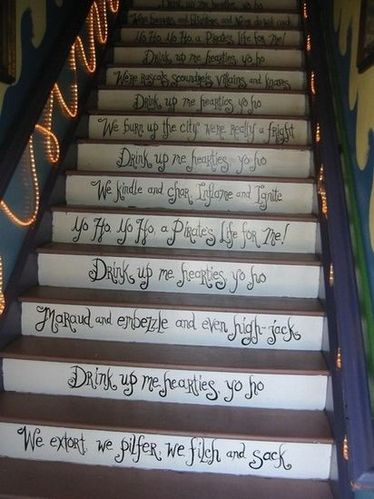 Drink up me hearties, yo ho
We're beggars and blighters and Ne'er do well cads
Yo Ho, Yo Ho, a Pirates Life for Me!
Drink up me hearties, yo ho
We're Rascals, scoundrels, villains, and knaves
Drink up me hearties yo ho
We burn up the city we're really a fright
Drink up me hearties yo ho
We kindle and char, Inflame and Ignite
Yo Ho, Yo Ho, a Pirate's Life for Me!
Drink up me hearties, yo ho
Maraud and enbezzle and even high-jack
Drink up me hearties, yo ho
We extort, we pilfer, we filch and sack